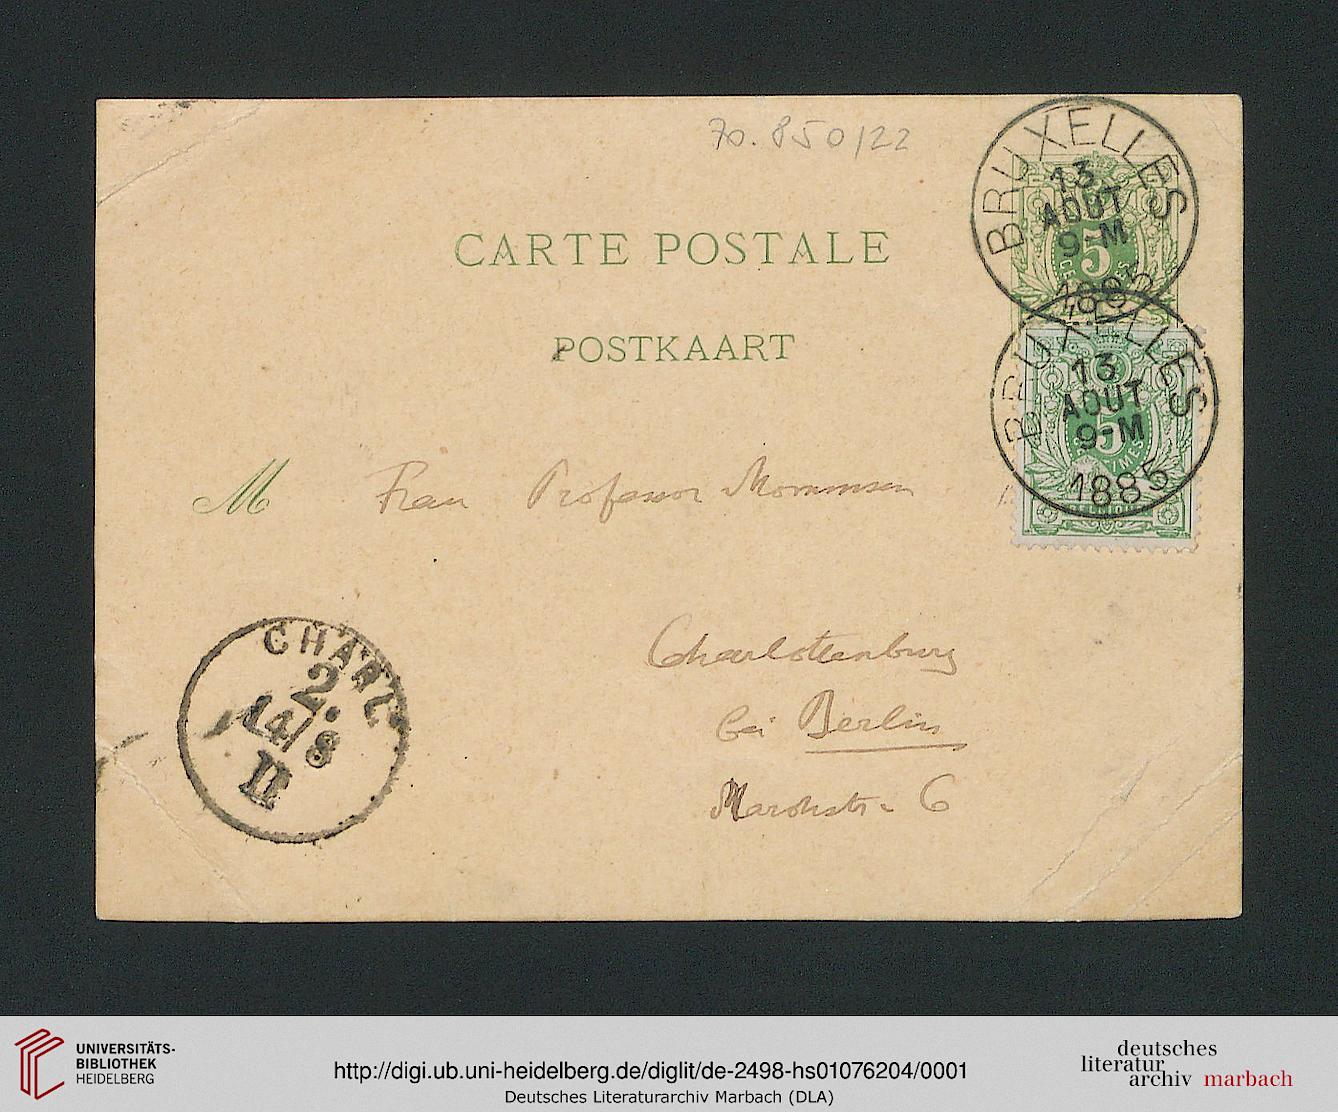 70.850/22
CARTE POSTALE
POSTKAART
BRUXELLES
13
AOUT
9-M
1885
5
BRUXELLES
13
AOUT
9-M
1885
5
M Frau Professor Mommsen
Charlottenburg
bei Berlin
Marchstr. 6
CHARL
2.
14/8
II
UNIVERSITÄTS-
BIBLIOTHEK
HEIDELBERG
http://digi.ub.uni-heidelberg.de/diglit/de-2498-hs01076204/0001
Deutsches Literaturarchiv Marbach (DLA)
deutsches
literatur
archiv marbach